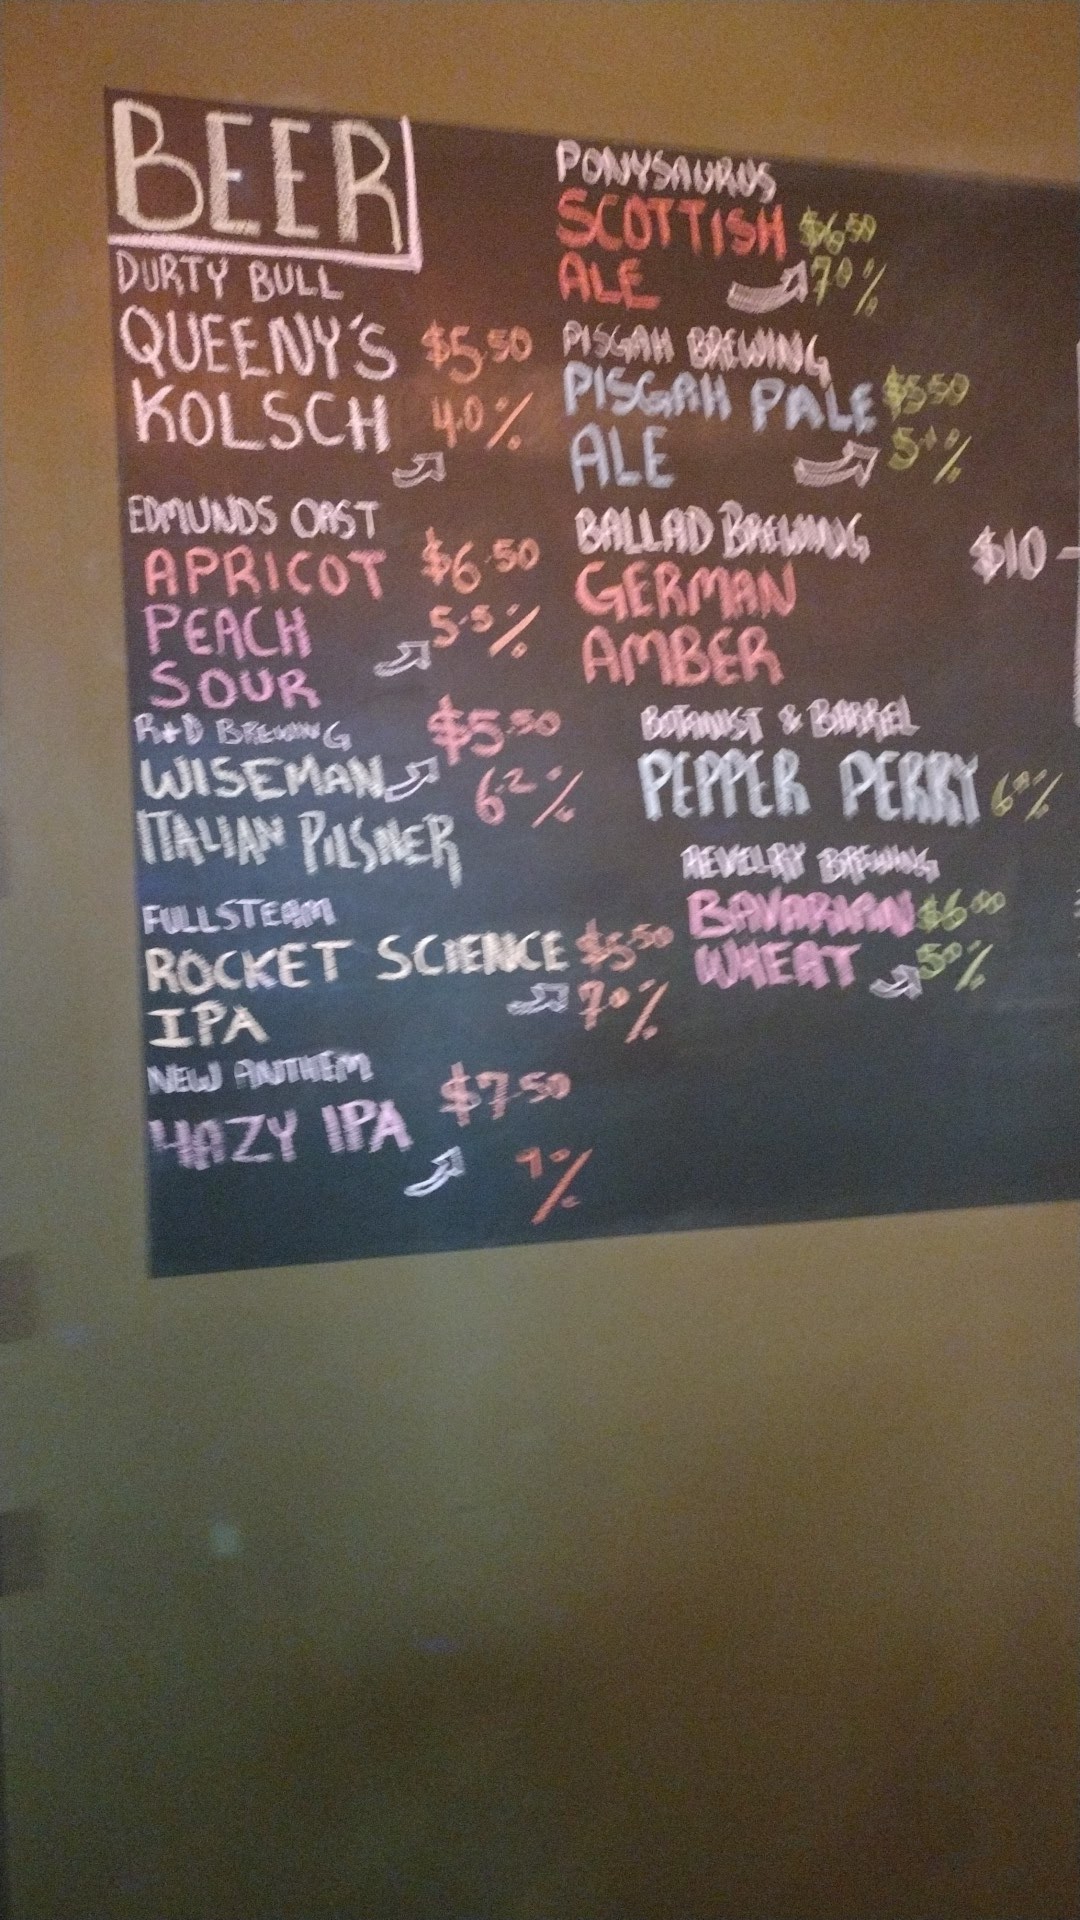 BEER
DURTY BULL
QUEENY'S $5.50
KOLSCH 4.0%
EDMUNDS OAST
APRICOT $6.50
PEACH 5.5%
SOUR
R+D BREWING $5.50
WISEMAN 6.2%
ITALIAN PILSNER
FULLSTEAM
ROCKET SCIENCE $5.50
IPA 7.0%
NEW ANTHEM
HAZY IPA $7.50
%
PONYSAURUS
SCOTTISH $6.50
ALE 7.0%
PISGAH BREWING
PISGAH PALE $5.50
ALE %
BALLAD BREWING
GERMAN
AMBER
BOTANIST & BARREL
PEPPER PERRY
REVELRY BREWING
BAVARIAN $6.00
WHEAT 5.0%
$10 -